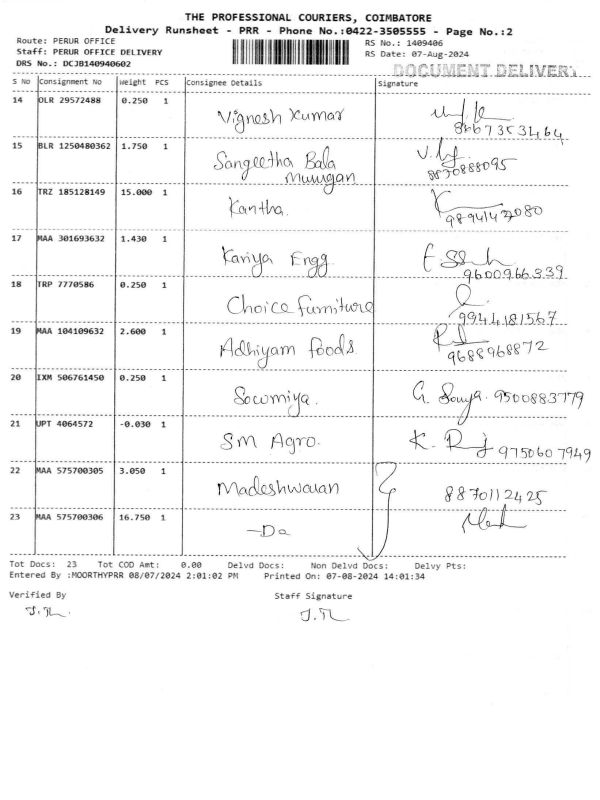 THE PROFESSIONAL COURIERS, COIMBATORE
Delivery Runsheet - PRR - Phone No.:0422-3505555 - Page No.:2
Route: PERUR OFFICE RS No.: 1409406
Staff: PERUR OFFICE DELIVERY RS Date: 07-Aug-2024
DRS No.: DCJB140940602 DOCUMENT DELIVERY
S No Consignment No Weight PCS Consignee Details Signature
14 OLR 29572488 0.250 1 Vignesh Kumar
8667353464
15 BLR 1250480362 1.750 1 Sangeetha Bala
Murugan 8870888095
16 TRZ 185128149 15.000 1 Kantha.
17 MAA 301693632 1.430 1 Kariya Engg
9600966339
18 TRP 7770586 0.250 1 Choice furniture
9944181567
19 MAA 104109632 2.600 1 Adhiyam foods
9688968872
20 IXM 506761450 0.250 1 Sowmiya. G. Sowya. 9500883779
21 UPT 4064572 -0.030 1 SM Agro. K. Raj 9750607949
22 MAA 575700305 3.050 1 Madeshwaran 8870112425
23 MAA 575700306 16.750 1 -Do
Tot Docs: 23 Tot COD Amt: 0.00 Delvd Docs: Non Delvd Docs: Delvy Pts:
Entered By :MOORTHYPRR 08/07/2024 2:01:02 PM Printed On: 07-08-2024 14:01:34
Verified By Staff Signature